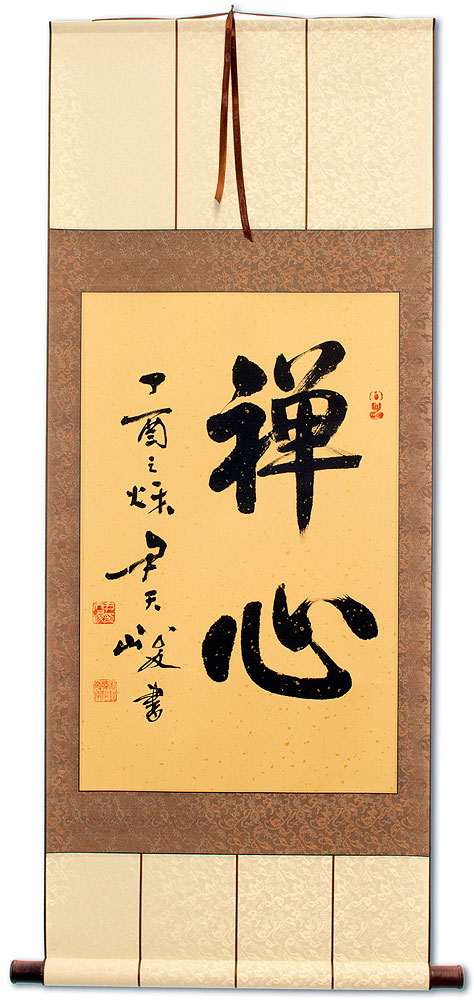 禅心
丁酉之秌尹天峻書